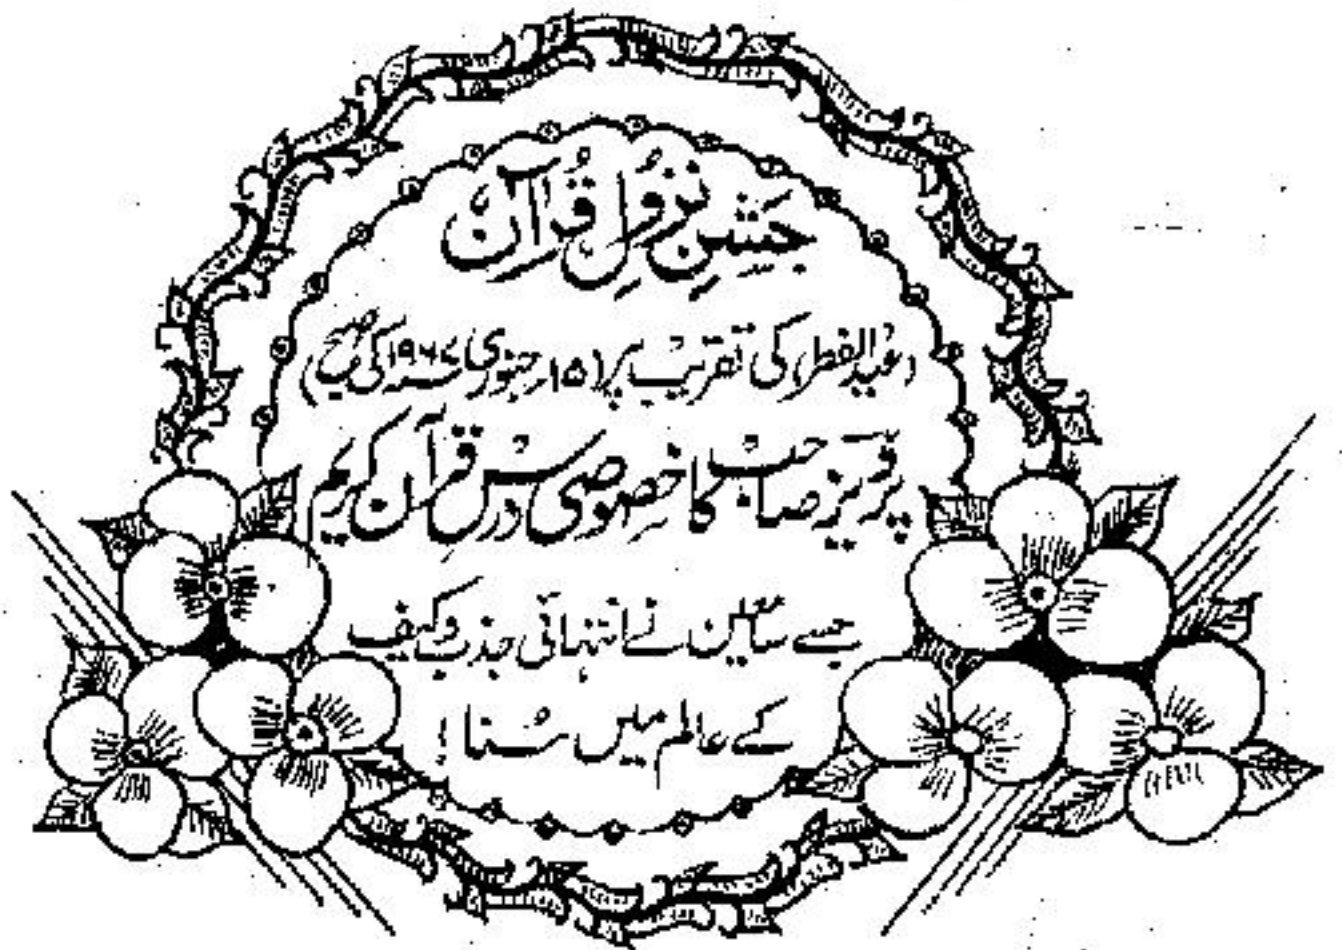 جَشنِ نزُولِ قُرآن
(عید الفطر کی تقریب پر ۱۵؍ جنوری ۱۹۶۷ء کی صبح)
پَرویز صاحب کا خصُوصی درسِ قرآن کریم
جسے سامعین نے انتہائی جذب و کیف
کے عالم میں سُنا!